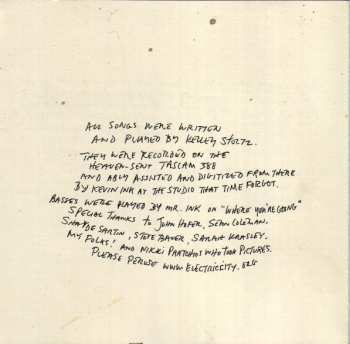 ALL SONGS WERE WRITTEN
AND PLAYED BY KELLEY STOLTZ.
THEY WERE RECORDED ON THE
HEAVEN-SENT TASCAM 388
AND ABLY ASSISTED AND DIGITIZED FROM THERE
BY KEVIN INK AT THE STUDIO THAT TIME FORGOT.
BASSES WERE PLAYED BY MR. INK ON "WHERE YOU'RE GOING"
SPECIAL THANKS TO JOHN HOFER, SEAN COLEMAN,
SHAYDE SARTIN, STEVE BAUER, SARAH KRASLEY,
MY FOLKS! AND NIKKI WHO TOOK PICTURES.
PLEASE PERUSE WWW.ELECTRICCITY.ORG